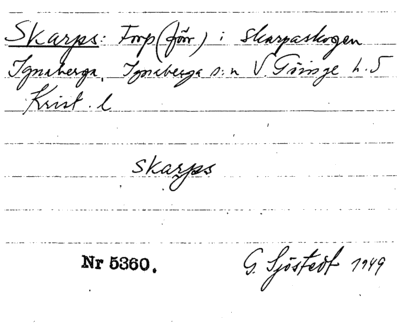 Skarps: Torp (förr) i Skarpaskogen
Ignaberga, Ignaberga s:n V. Göinge h. S
Krist. l.
Skarps
Nr 5360.
G. Sjöstedt 1949